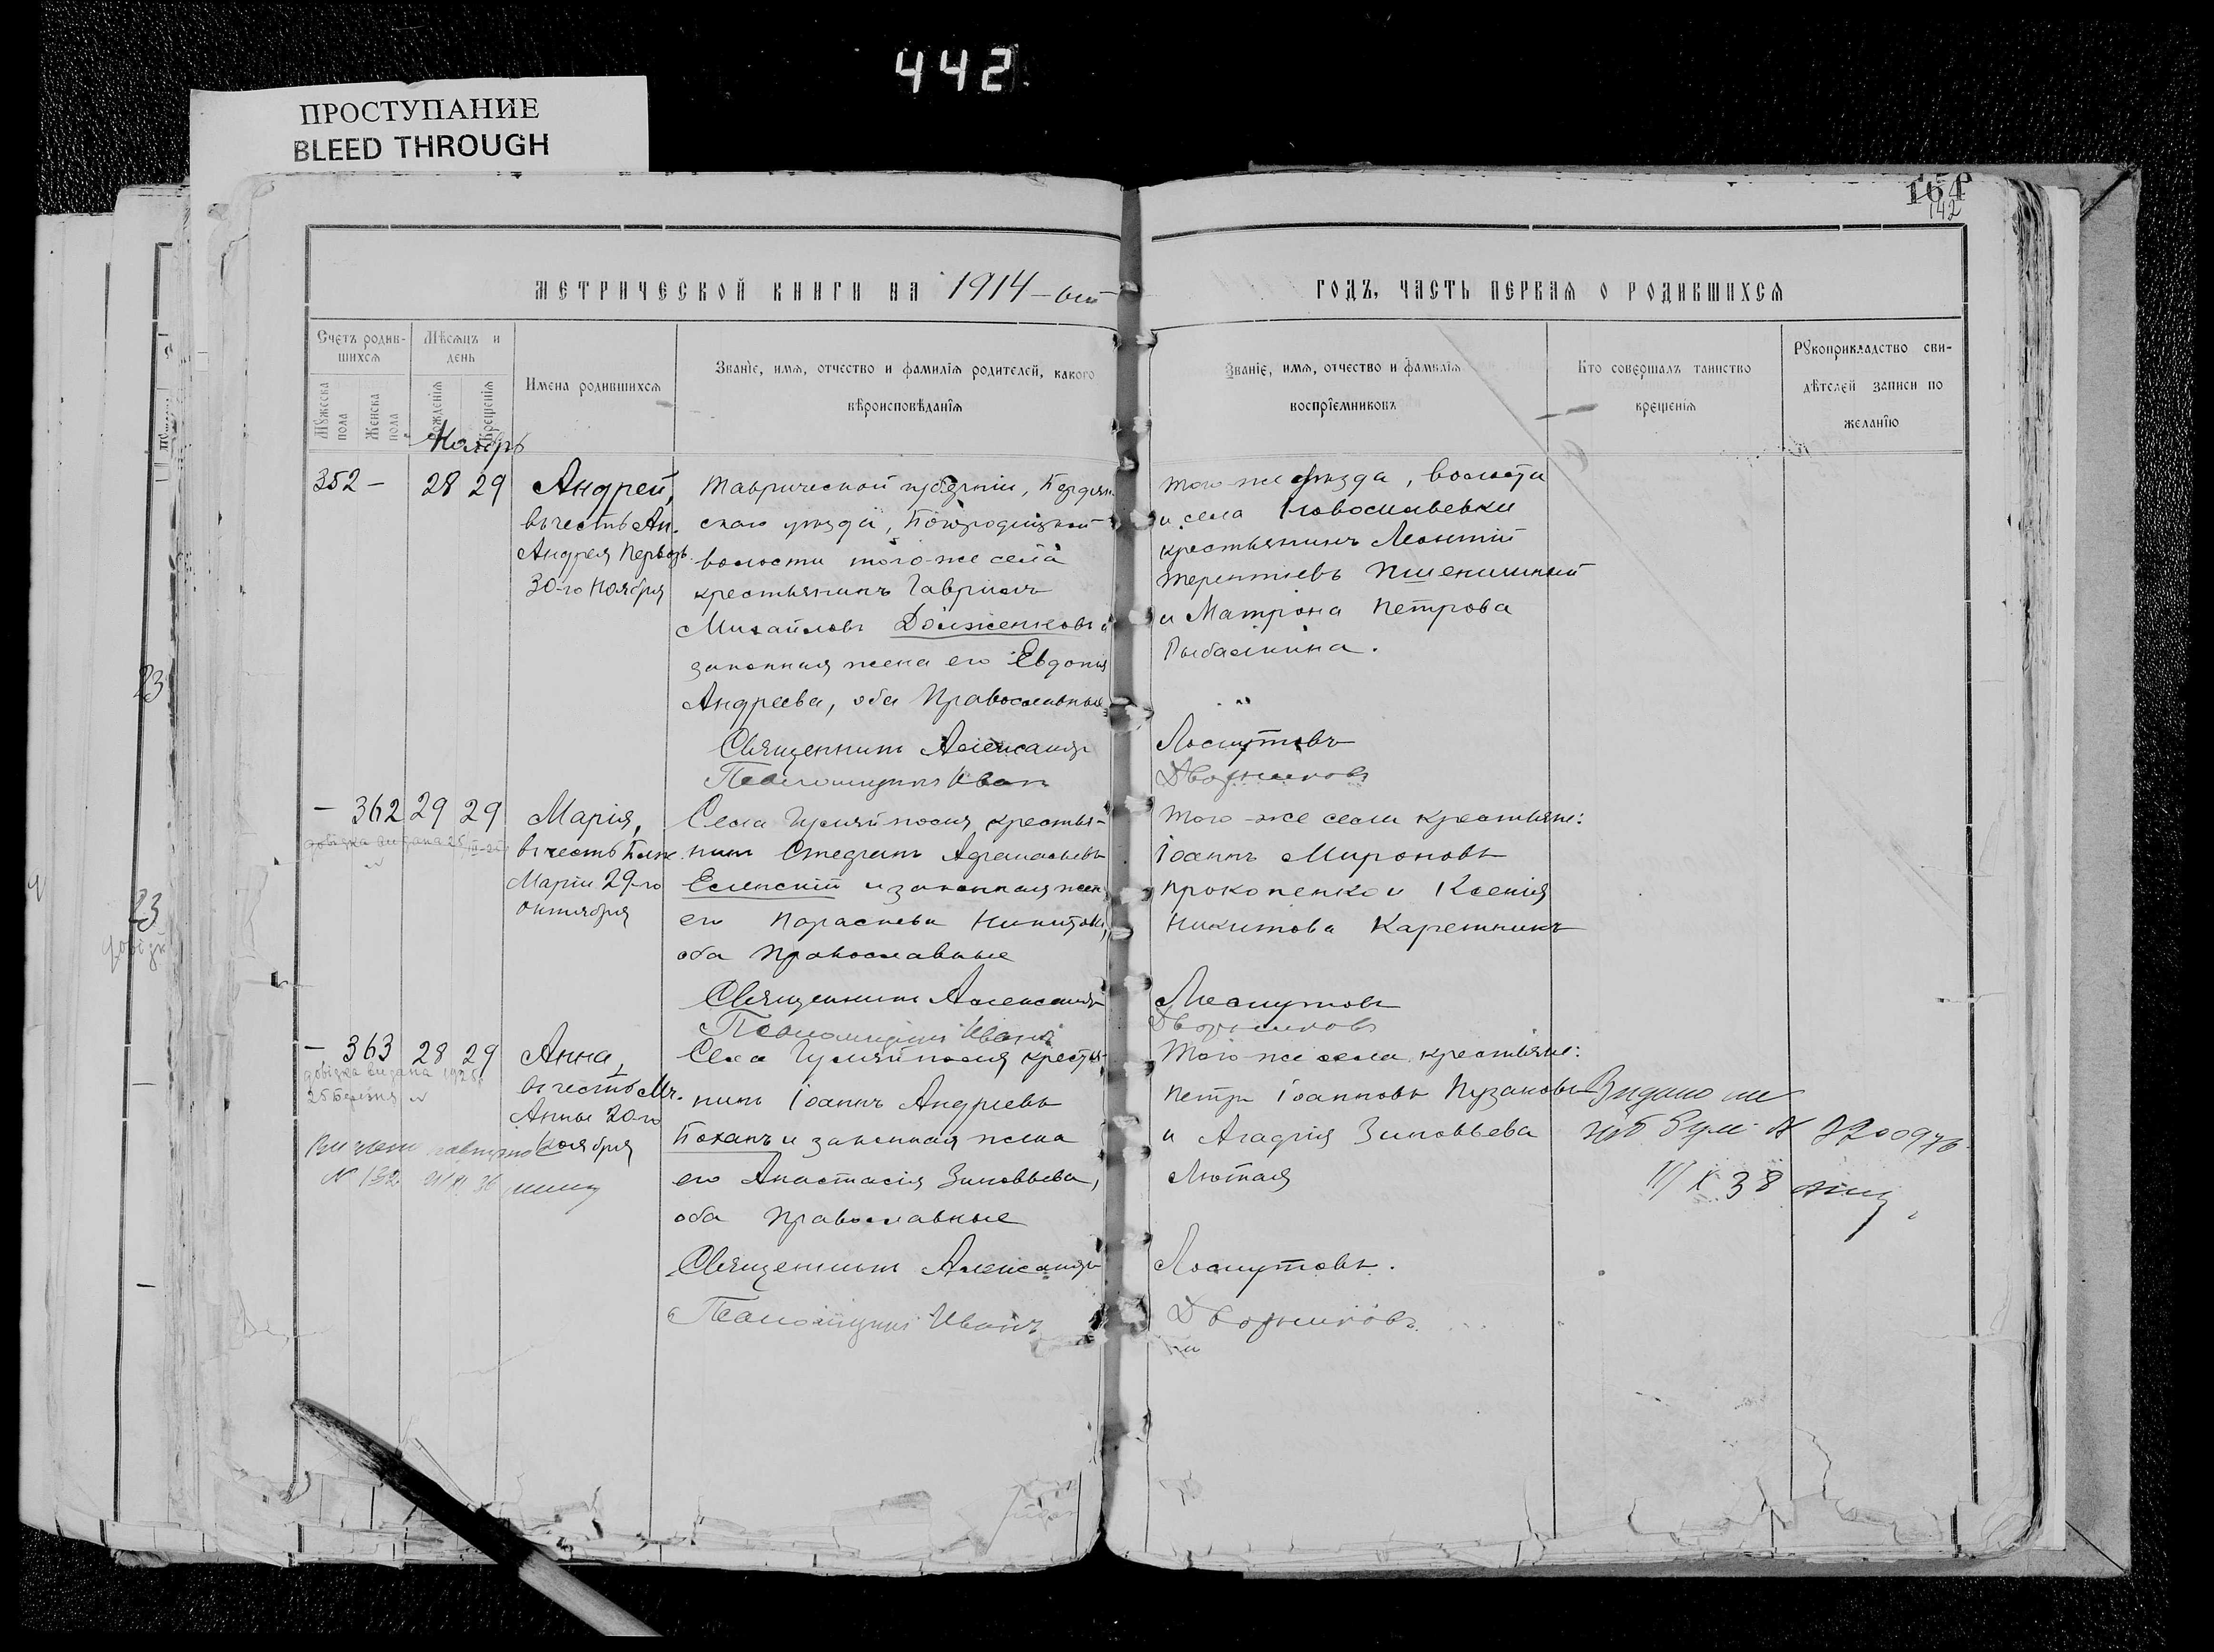 442
ПРОСТУПАНИЕ
BLEED THROUGH
164
142
МЕТРИЧЕСКОЙ КНИГИ НА 1914-ый
ГОДЪ, ЧАСТЬ ПЕРВАЯ О РОДИВШИХСЯ
Счетъ родившихся
Мѣсяцъ и день
Мужеска пола
Женска пола
Рожденія
Крещенія
Имена родившихся
Званіе, имя, отчество и фамилія родителей, какого
вѣроисповѣданія
Званіе, имя, отчество и фамилія
воспріемниковъ
Кто совершалъ таинство
крещенія
Рукоприкладство сви-
дѣтелей записи по
желанію
Ноябрь
352 - 28 29
Андрей,
въ честь Ап.
Андрея Первозв.
30-го Ноября
Таврической губерніи, Бердян
скаго уѣзда, Богородицкой
волости того-же села
крестьянинъ Гавріилъ
Михайловъ Долженковъ и
законная жена его Евдокія
Андреева, оба Православные
Священникъ Александръ
Псаломщикъ Иванъ
того-же уѣзда, волости
и села Новоспасовки
крестьянинъ Леонтій
Терентіевъ Пшеничный
и Матрона Петрова
Рыбалкина.
Лоскутовъ
Дворниковъ
- 362 29 29
довідка видана 25
Марія,
въ честь
Маріи 29-го
Октября
Села Гуляйполя крестья-
нинъ Стефанъ Афанасьевъ
Еленскій и законная жена
его Параскева Никитова,
оба Православные
Священникъ Александръ
Псаломщикъ Иванъ
Того-же села крестьяне:
Іоаннъ Мироновъ
Прокопенко и Ксенія
Никитова Каретникъ
Лоскутовъ
Дворниковъ
- 363 28 29
довідка видана
25 Березня
№ 132
Анна,
въ честь Мч.
Анны 20-го
Ноября
Села Гуляйполя крестья-
нинъ Іоаннъ Андреевъ
Боханъ и законная жена
его Анастасія Зиновьева,
оба Православные
Священникъ Александръ
Псаломщикъ Иванъ
Того-же села крестьяне:
Петръ Іоанновъ Пузановъ
и Агафія Зиновьева
Лютая
Лоскутовъ.
Дворниковъ
Видано
III/X 38
23
23